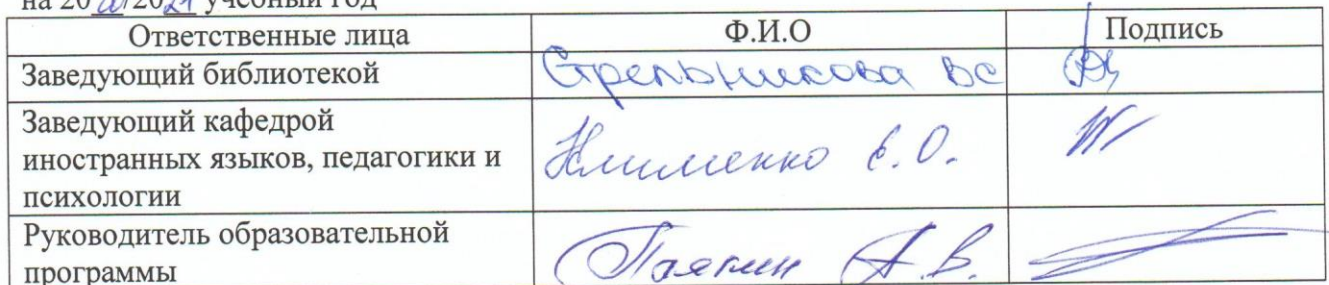 на 2020/2021 учебный год
Ответственные лица Ф.И.О Подпись
Заведующий библиотекой Стрельникова ВС
Заведующий кафедрой
иностранных языков, педагогики и
психологии
Клименко Е.О.
Руководитель образовательной
программы
А.В.